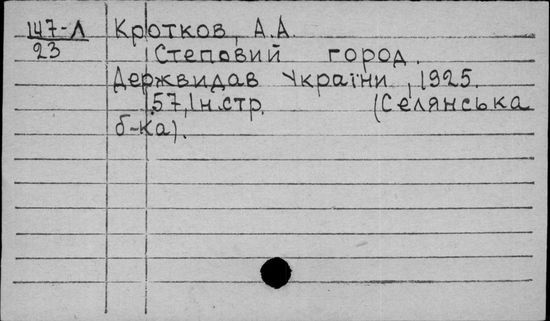 147-Л Кротков, А.А.
23 Степовий город.
Держвидав України, 1925.
57,1н.стр. (Селянська
б-ка).